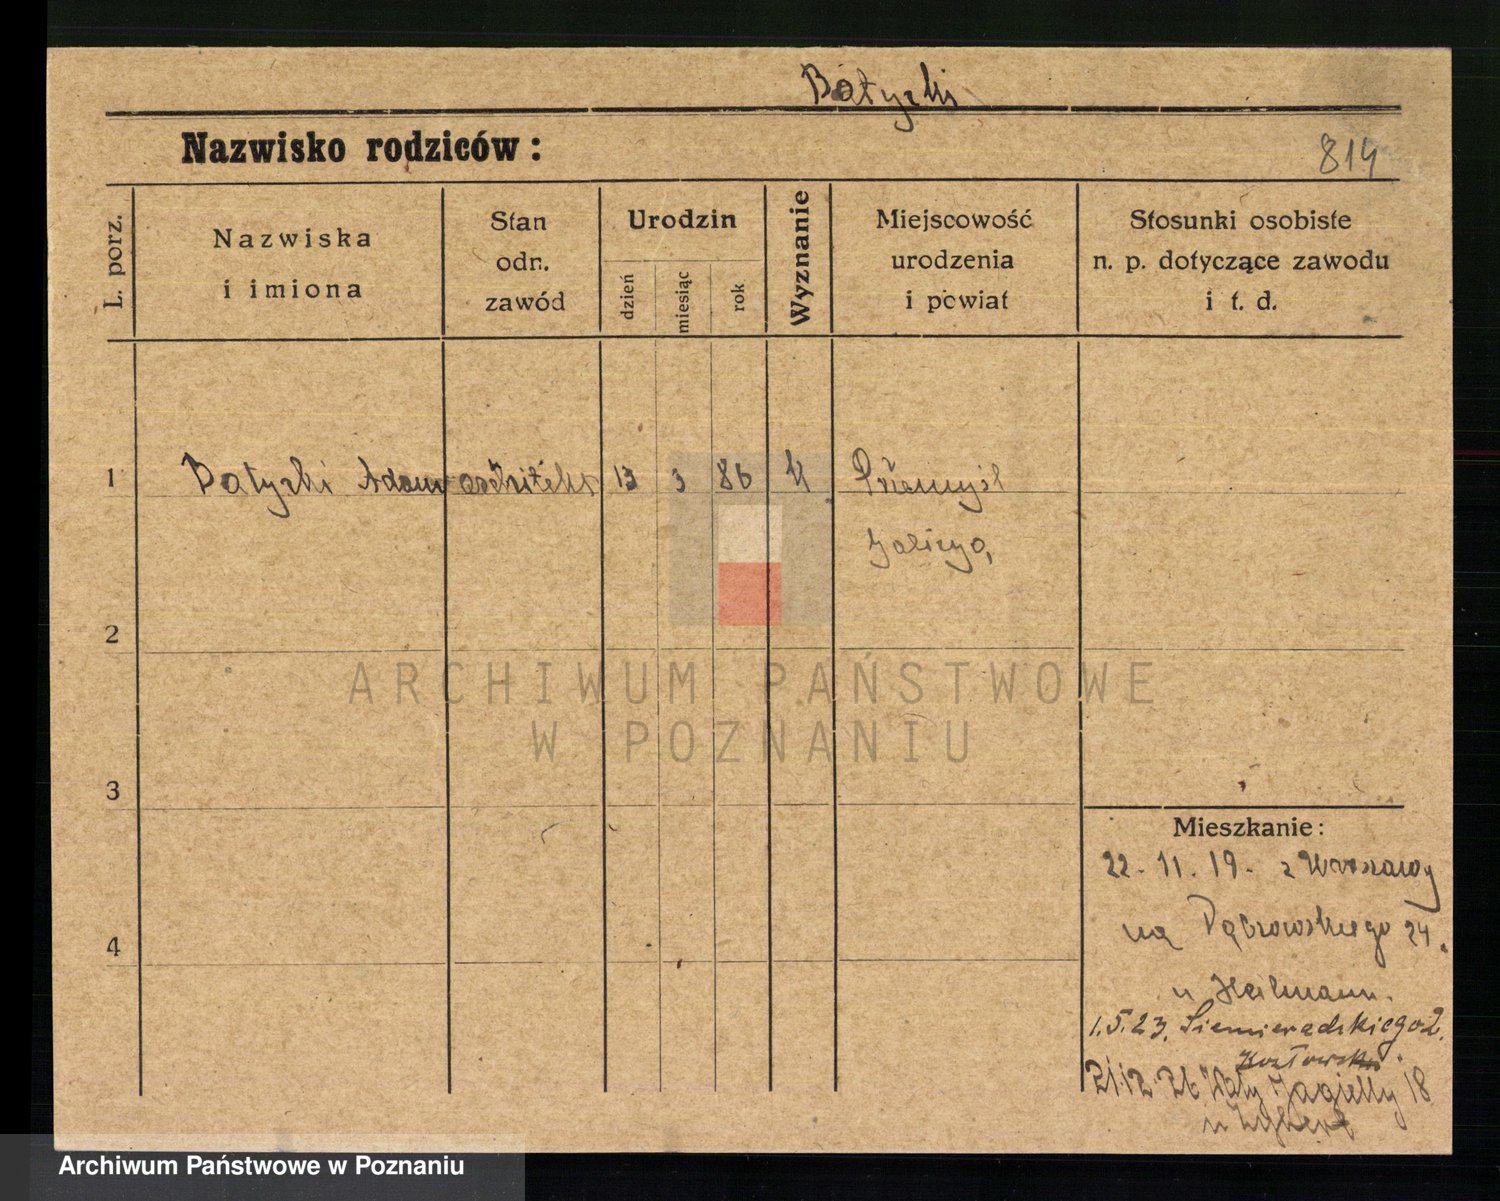 Batycki
Nazwisko rodziców :
814
L. porz.
Nazwiska
i imiona
Stan
odn.
zawód
Urodzin
dzień
miesiąc
rok
Wyznanie
Miejscowość
urodzenia
i powiat
Stosunki osobiste
n. p. dotyczące zawodu
i t. d.
1 Batycki Adam architekt 13 3 86 k Přemysl
2
3
4
Mieszkanie:
22. 11. 19. z Warszawy
na Dąbrowskiego 24.
u Heilmann.
1.5.23. Siemieradskiego 2.
Kozłowski
21.12.26 Wały Jagiełły 18
ARCHIWUM PAŃSTWOWE
W POZNANIU
Archiwum Państwowe w Poznaniu